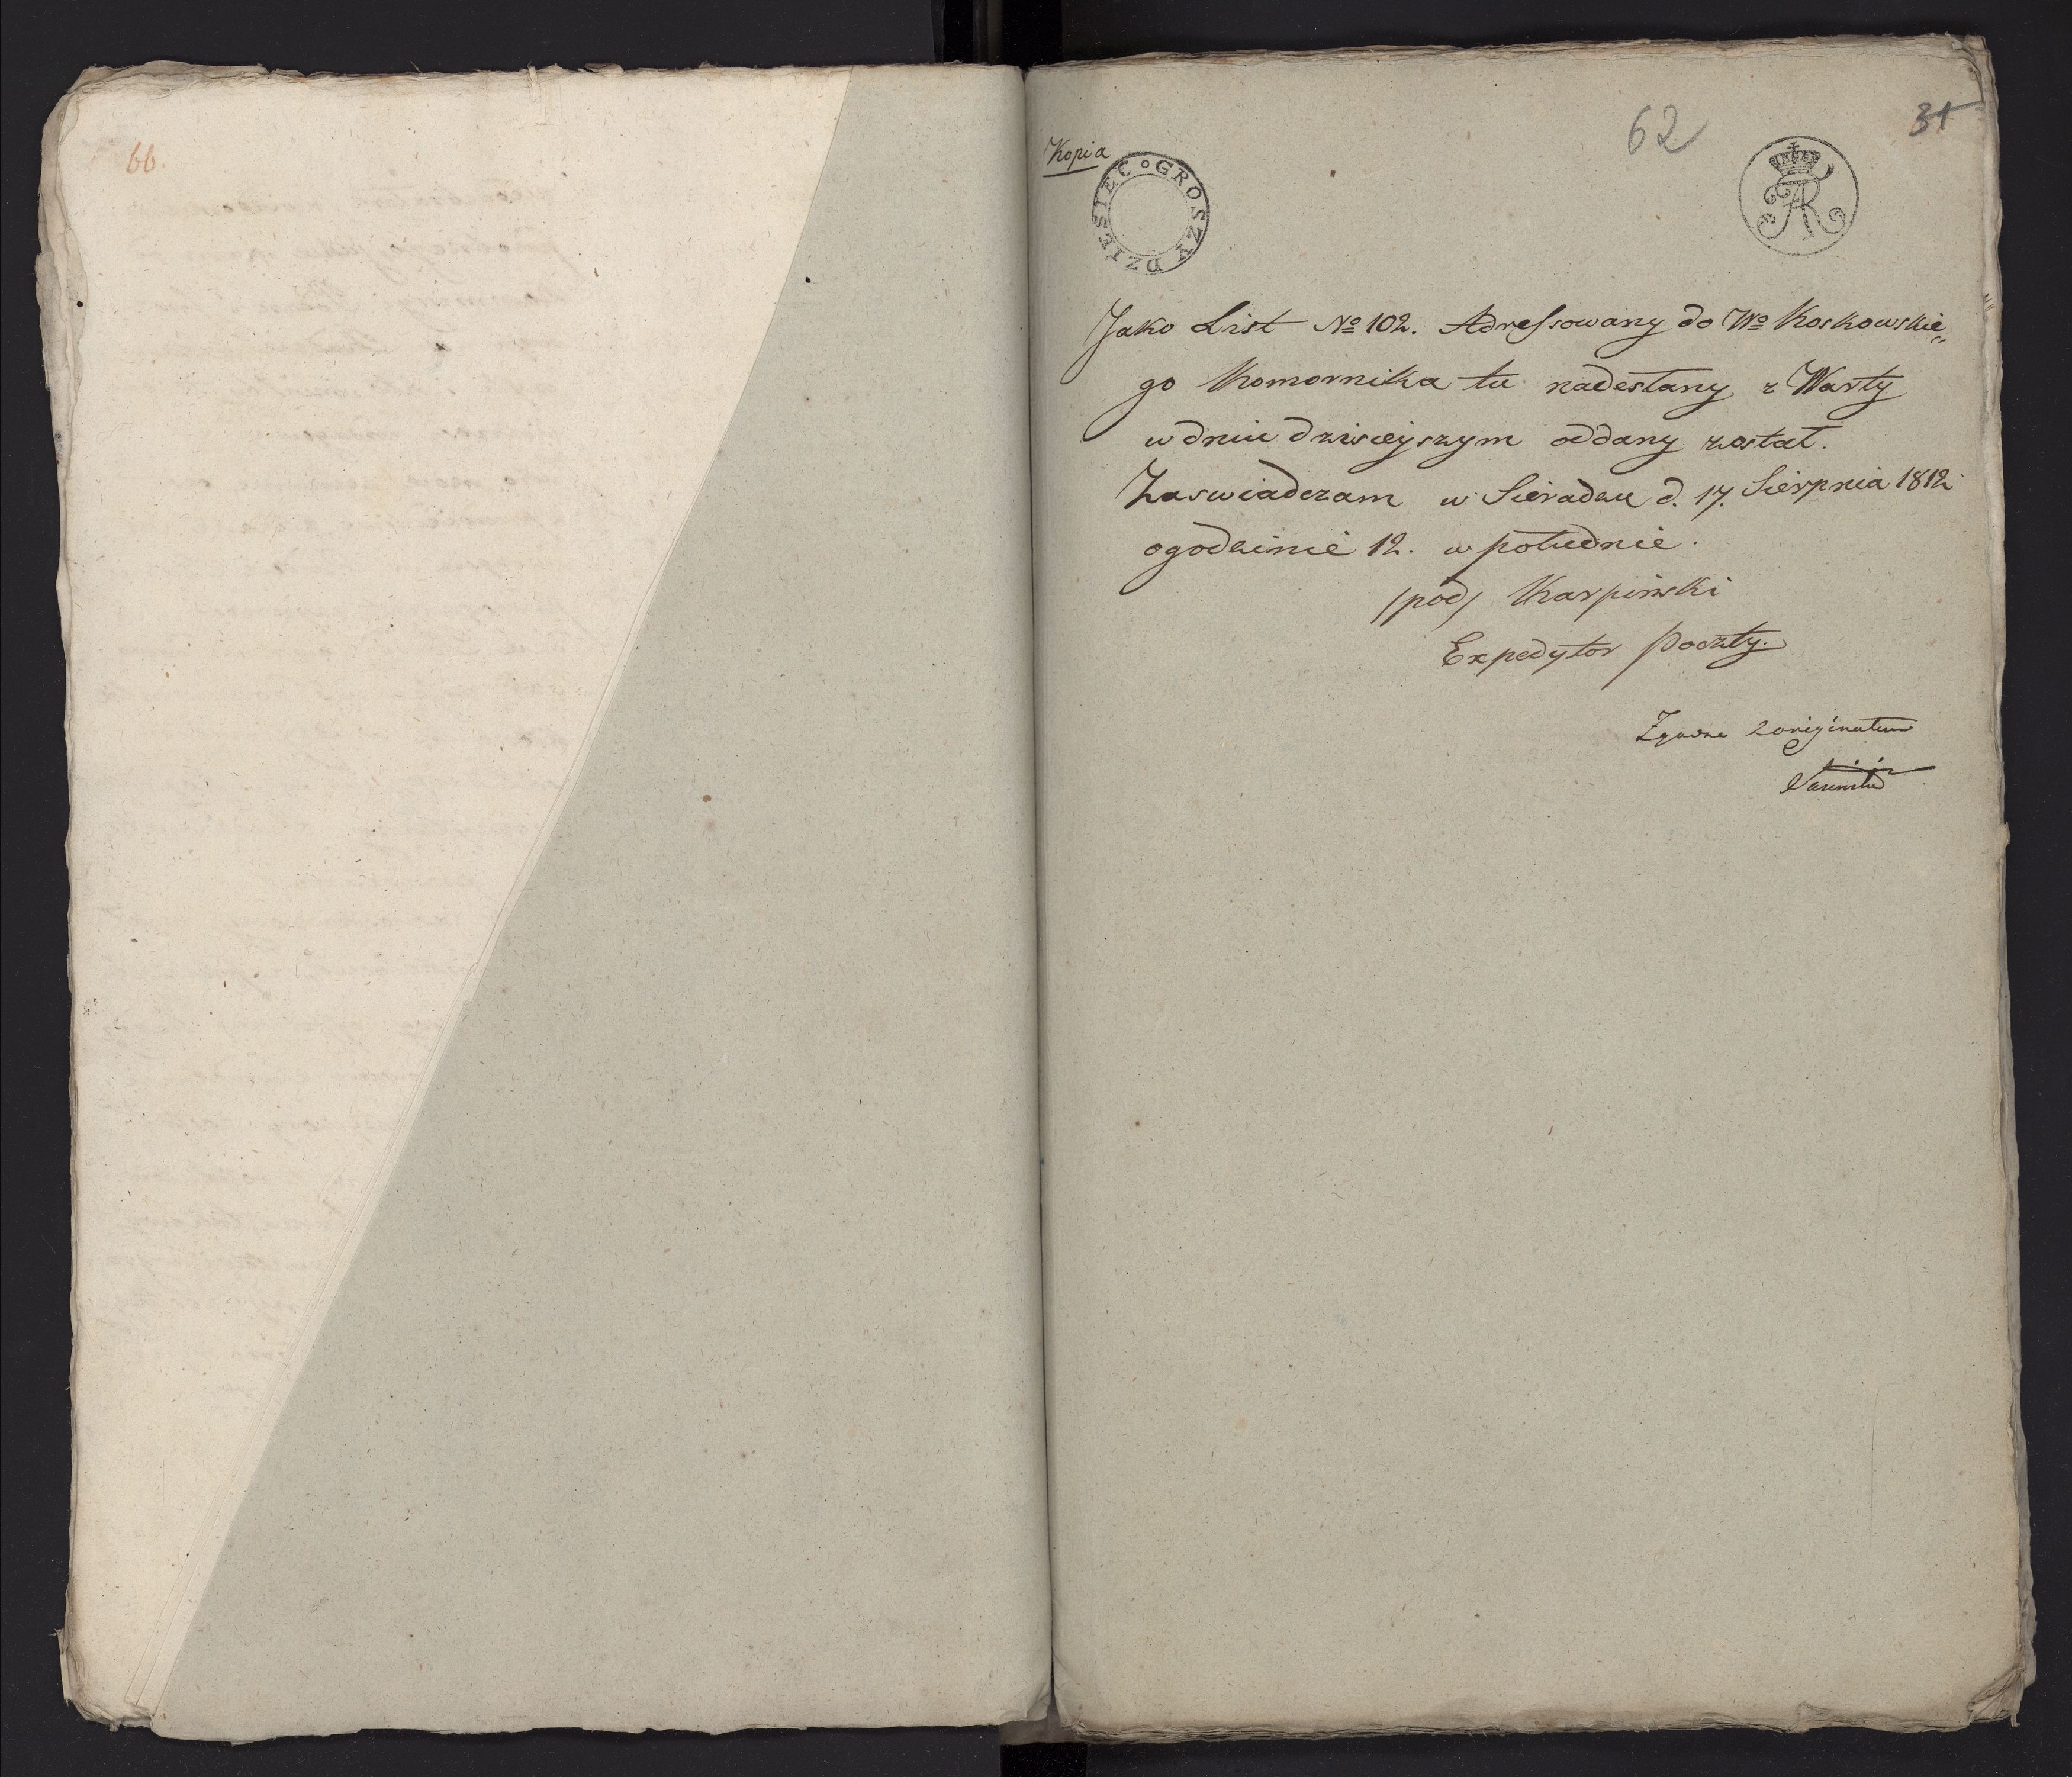 66.
Kopia
62
31
DZIESIEC GROSZY
FAR
Jako List No 102. Adressowany do Wo Koskowskie„
go Komornika tu nadesłany z Warty
w dniu dzisieyszym oddany został.
Zaswiadczam w Sieradzu d. 17. Sierpnia 1812
ogodzinie 12. w południe.
/pod/ Karpiński
Expedytor Poczty.
Zgodne z originałem